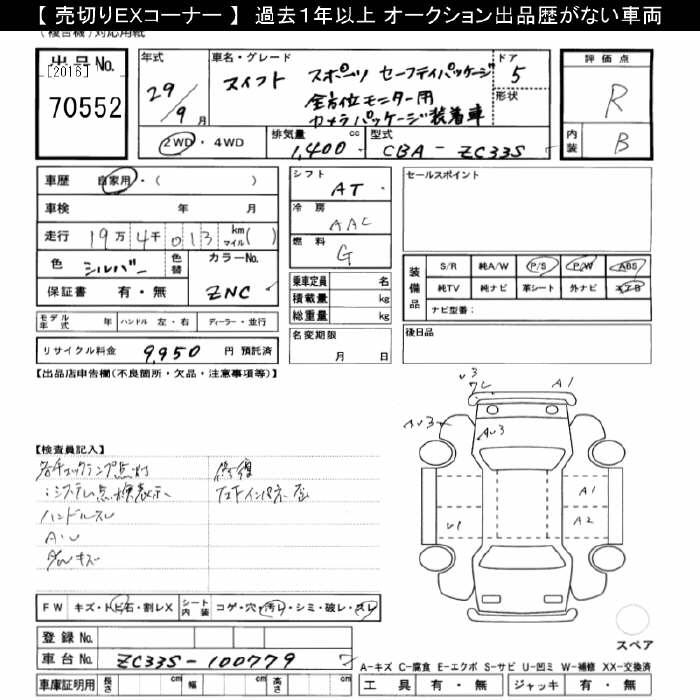 【 売切りEXコーナー 】 過去1年以上 オークション出品歴がない車両
(複合機)対応用紙
出品No.
[2016]
70552
年式
29/9月
車名・グレード
スイフト スポーツ セーフティパッケージ
全方位モニター用
カメラパッケージ装着車
ドア
5
形状
評価点
R
内装
B
2WD・4WD
排気量
1,400 cc
型式
CBA - ZC33S
車歴 自家用・( )
車検 年 月
走行 19万4千013 km マイル( )
色 シルバー
色替
カラーNo.
ZNC
保証書 有・無
モデル年式 年 ハンドル 左・右 ディーラー・並行
リサイクル料金 9,950 円 預託済
シフト
AT
冷房
AAC
燃料
G
乗車定員 名
積載量 kg
総重量 kg
名変期限
月 日
セールスポイント
装備品
S/R 純A/W P/S P/W ABS
純TV 純ナビ 革シート 外ナビ エアB
ナビ型番:
後日品
【出品店申告欄(不良箇所・欠品・注意事項等)】
【検査員記入】
各チェックランプ点灯
:システム点検表示
ハンドルスレ
AU
各ωキズ
修復
右Fインパネ 歪
v3
ワレ
A1
Av3
Av3
A1
A2
v1
FW キズ・トビ石・割レX
シート内装 コゲ・穴・汚レ・シミ・破レ・スレ
登録No.
車台No. ZC33S-100779 7
車庫証明用 長さ cm 幅 cm 高さ cm
スペア
A-キズ C-腐食 E-エクボ S-サビ U-凹ミ W-補修 XX-交換済
工具 有・無 ジャッキ 有・無